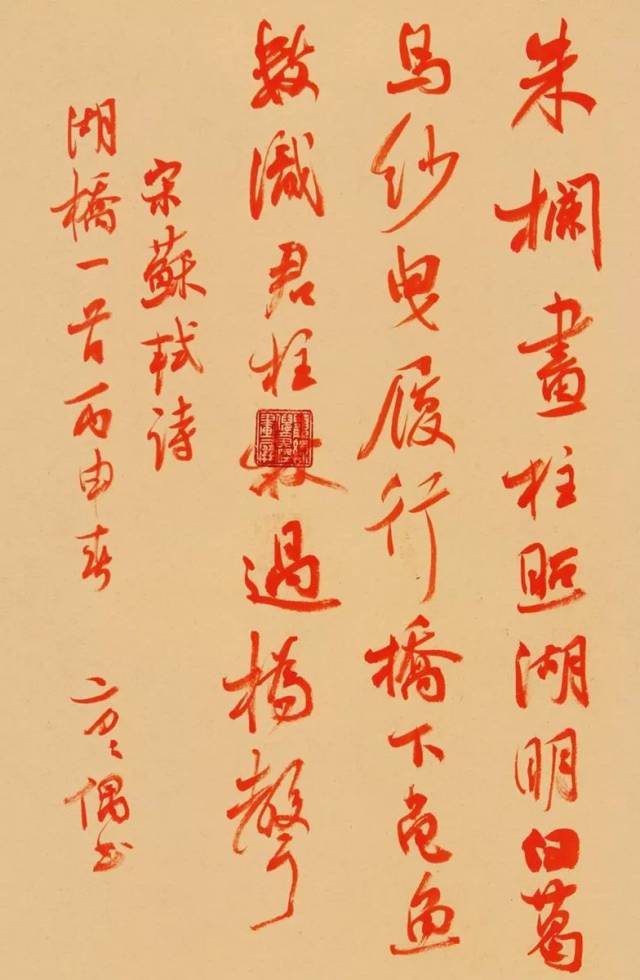 朱欄畫柱照湖明白葛
烏紗曳履行橋下龜魚
數識君拄杖過橋聲
宋蘇軾詩
湖橋一首丙申春 偶書